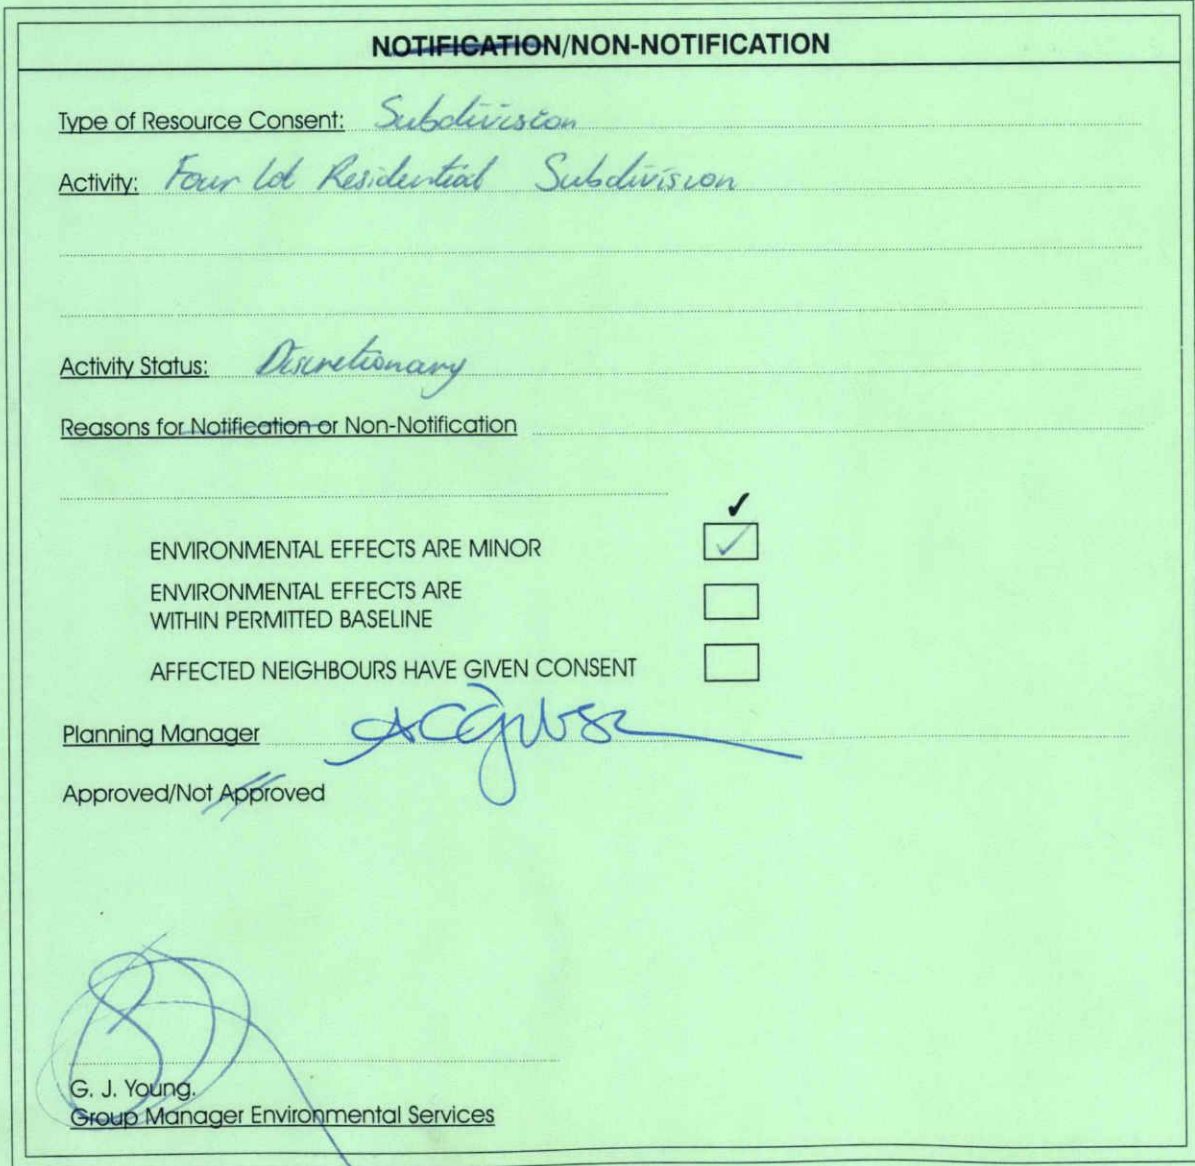 NOTIFICATION/NON-NOTIFICATION
Type of Resource Consent: Subdivision
Activity: Four lot Residential Subdivision
Activity Status: Discretionary
Reasons for Notification or Non-Notification
✓
ENVIRONMENTAL EFFECTS ARE MINOR ✓
ENVIRONMENTAL EFFECTS ARE
WITHIN PERMITTED BASELINE
AFFECTED NEIGHBOURS HAVE GIVEN CONSENT
Planning Manager
Approved/Not Approved
G. J. Young.
Group Manager Environmental Services